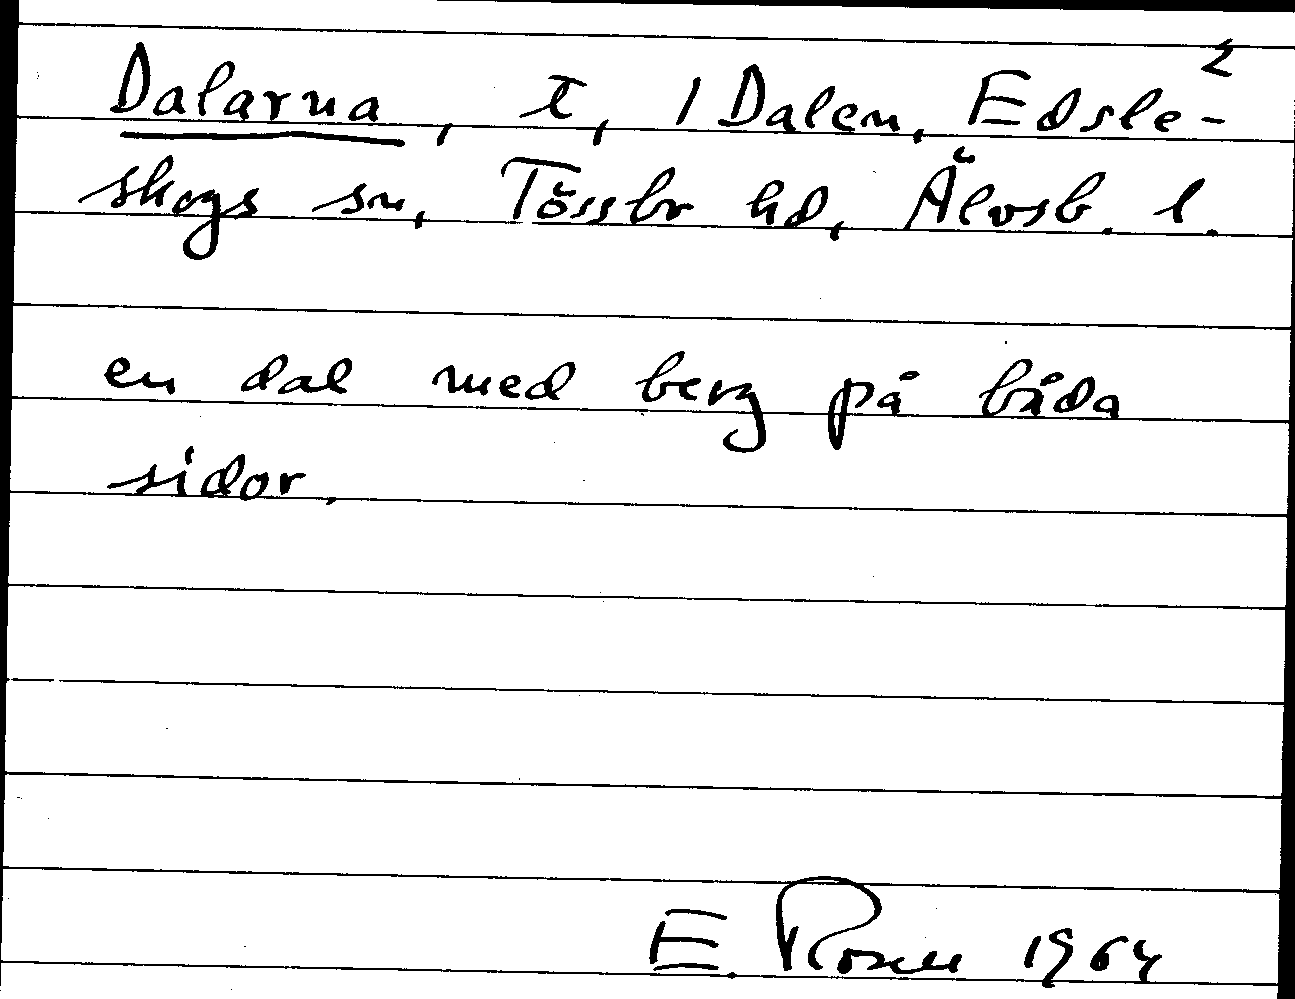 2
Dalarna, t, 1 Dalen, Edsle-
skogs sn, Tössbo hd, Älvsb. l.
en dal med berg på båda
sidor.
E. Rosell 1964